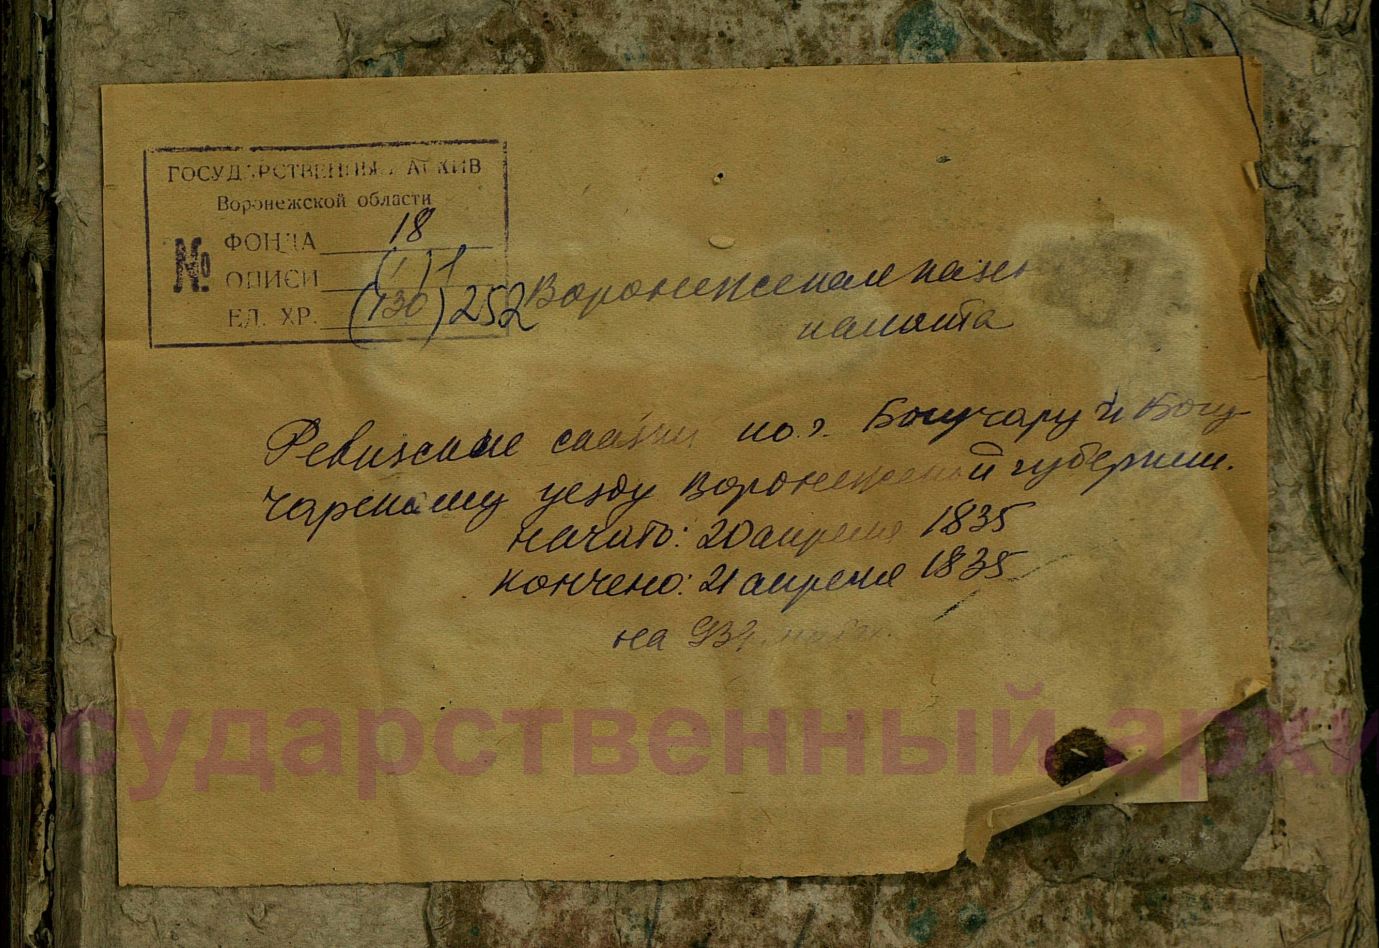 ГОСУДАРСТВЕННЫЙ АРХИВ
Воронежской области
№
ФОНДА 18
ОПИСИ (1) 1
ЕД. ХР. (130) 252
Воронежская казен
палата
Ревизские сказки по г. Богучару и Богу
чарскому уезду Воронежской губернии.
начато: 20 апреля 1835
кончено: 21 апреля 1835
на
осударственный архи